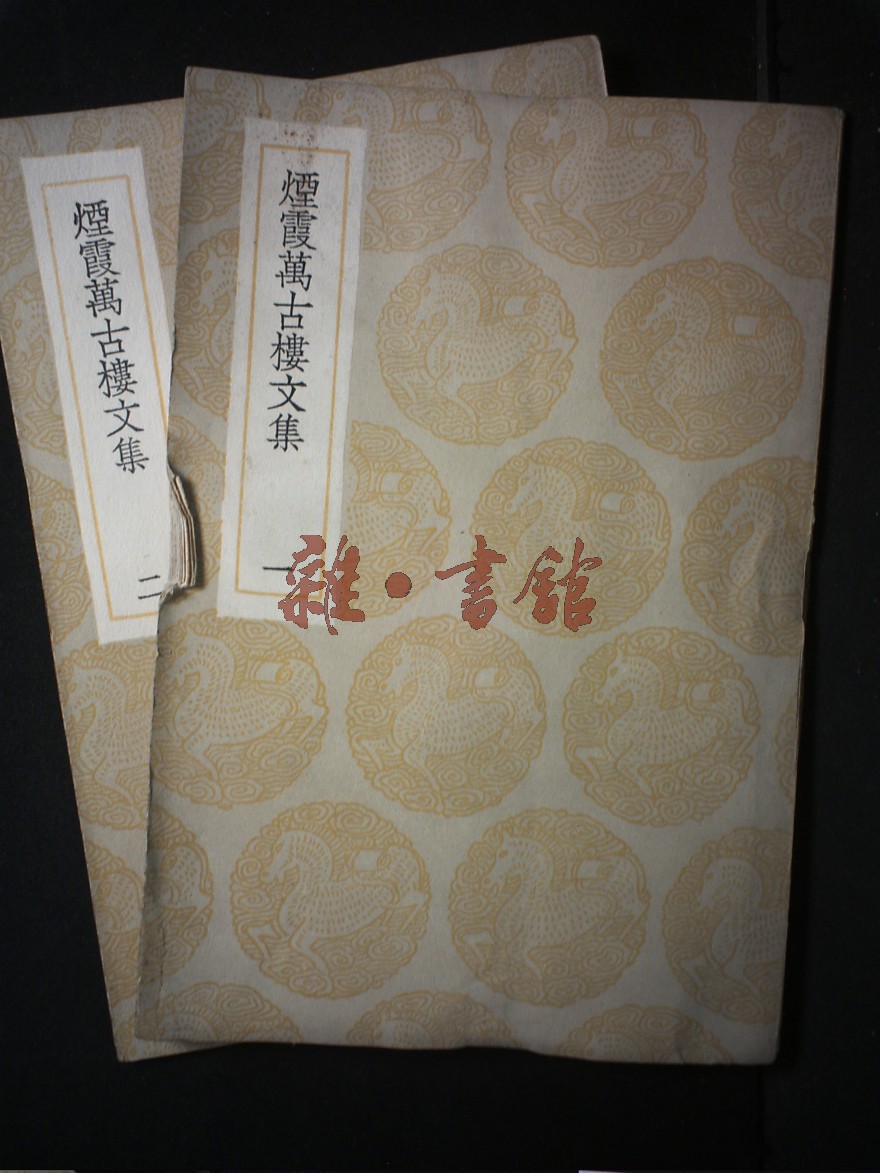 煙霞萬古樓文集
一
煙霞萬古樓文集
二
雜·書館